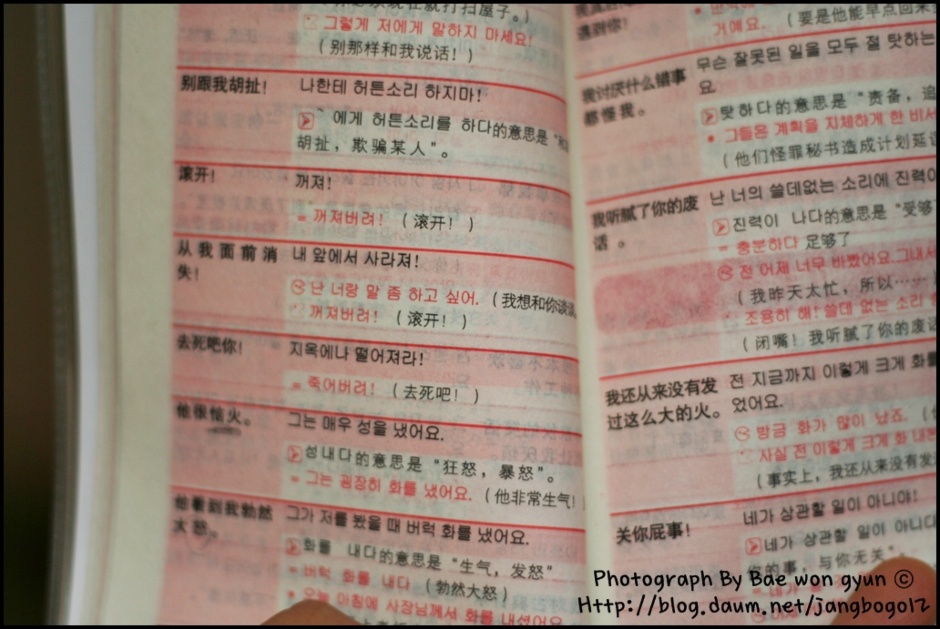 그렇게 저에게 말하지 마세요!
(别那样和我说话!)
别跟我胡扯! 나한테 허튼소리 하지마!
에게 허튼소리를 하다的意思是
胡扯, 欺骗某人"。
滚开! 꺼져!
= 꺼져버려! (滚开!)
从我面前消失! 내 앞에서 사라져!
난 너랑 말 좀 하고 싶어. (我想和你谈谈
꺼져버려! (滚开!)
去死吧你! 지옥에나 떨어져라!
= 죽어버려! (去死吧!)
他很恼火。 그는 매우 성을 냈어요.
성내다的意思是 "狂怒, 暴怒"。
= 그는 굉장히 화를 냈어요. (他非常生气!
他看到我勃然大怒。 그가 저를 봤을 때 버럭 화를 냈어요.
화를 내다的意思是 "生气, 发怒"
= 버럭 화를 내다 (勃然大怒)
• 오늘 아침에 사장님께서 화를 내셨어요.
거예요. (要是他能早点回来
我讨厌什么错事都怪我。 무슨 잘못된 일을 모두 절 탓하는
요.
탓하다的意思是 "责备, 追
• 그들은 계획을 지체하게 한 비서
(他们怪罪秘书造成计划延
我听腻了你的废话。 난 너의 쓸데없는 소리에 진력이
진력이 나다的意思是 "受够
= 충분하다 足够了
전 어제 너무 바빴어요.그내서
(我昨天太忙, 所以……
조용히 해! 쓸데 없는 소리
(闭嘴! 我听腻了你的废话
我还从来没有发过这么大的火。 전 지금까지 이렇게 크게 화를
었어요.
방금 화가 많이 났죠.
사실 전 이렇게 크게 화 내본
(事实上, 我还从来没有发
关你屁事! 네가 상관할 일이 아니야!
네가 상관할 일이 아니다
你的事, 与你无关"
Photograph By Bae won gyun ©
Http://blog.daum.net/jangbogo12